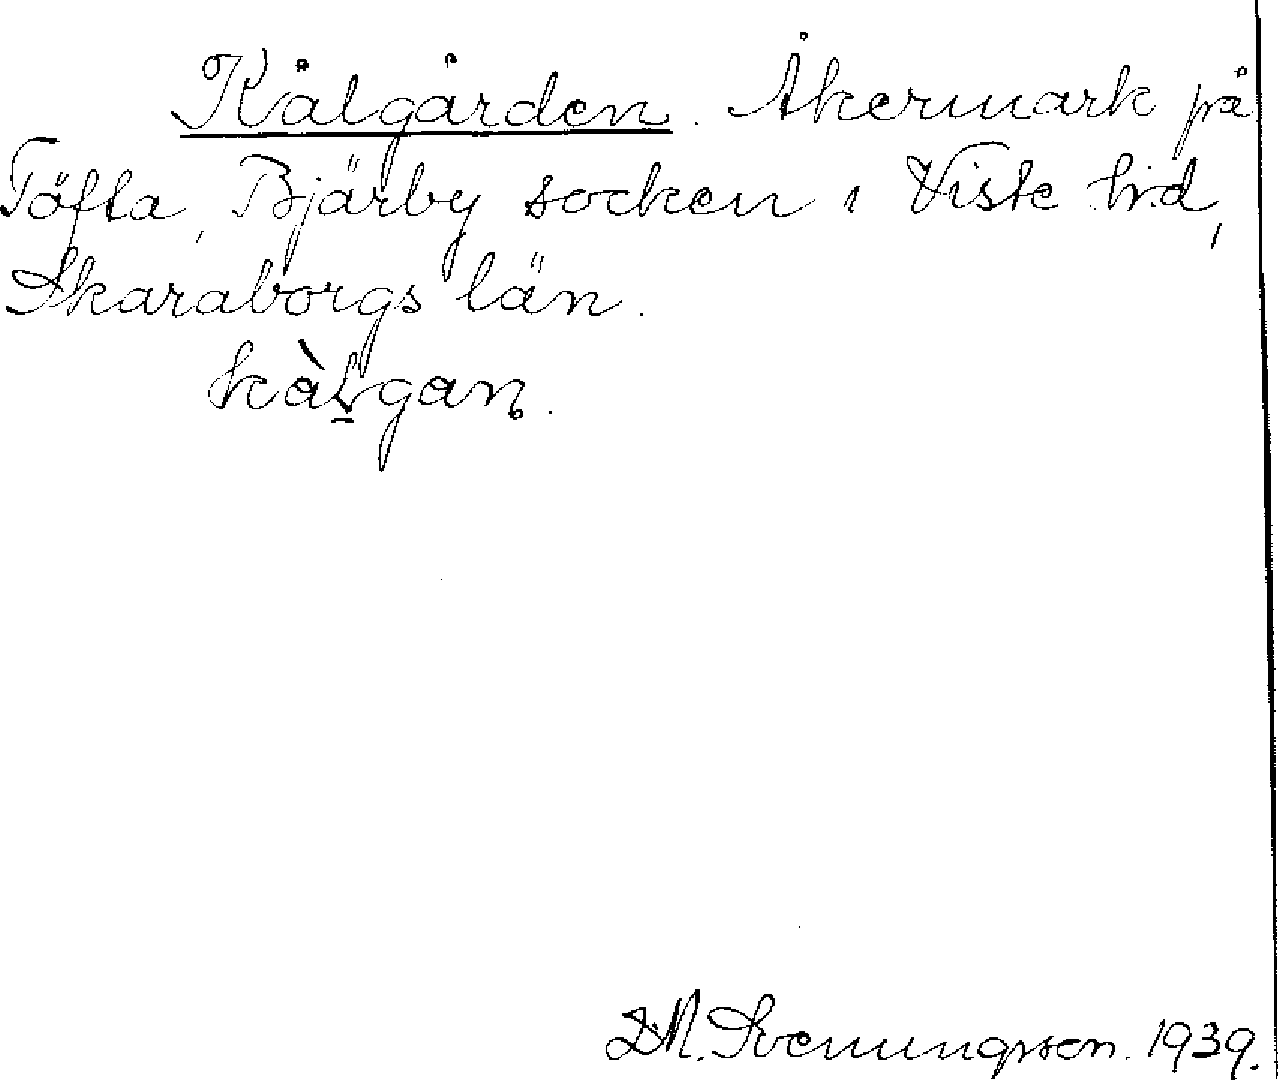 Kålgården. Åkermark på
Töfta, Bjärby socken i Viste hd,
Skaraborgs län.
kàḻgan.
D.M. Svenungsson. 1939.